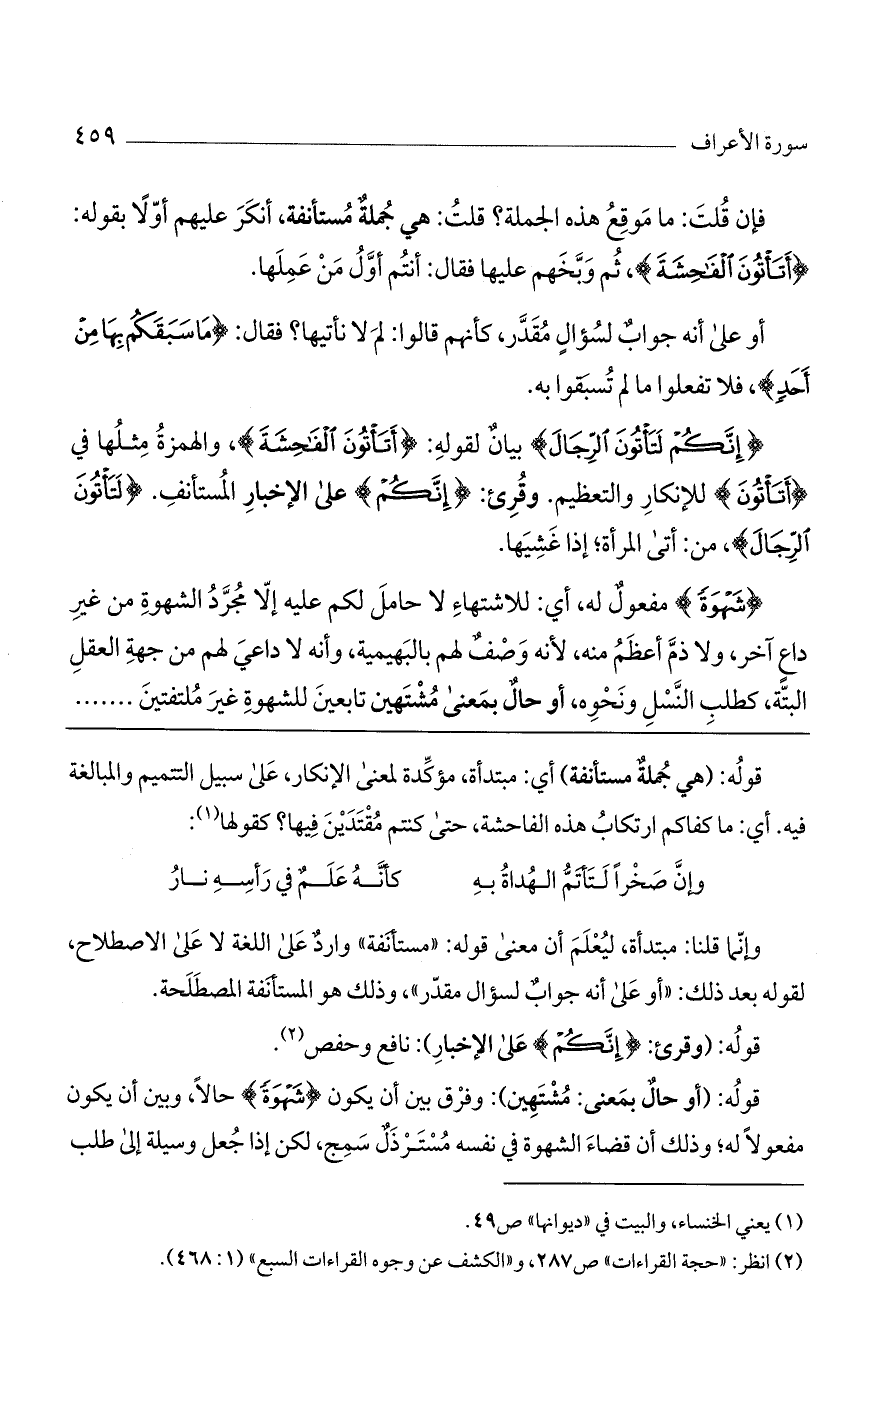 سورة الأعراف ٤٥٩
فإن قُلتَ: ما مَوقِعُ هذه الجملة؟ قلتُ: هي جُملةٌ مُستأنفة، أنكَرَ عليهم أوّلًا بقوله:
﴿أَتَأْتُونَ ٱلْفَٰحِشَةَ﴾، ثُم وَبَّخَهم عليها فقال: أنتُم أوَّلُ مَنْ عَمِلَها.
أو علىٰ أنه جوابٌ لسُؤالٍ مُقَدَّر، كأنهم قالوا: لمَ لا نأتيها؟ فقال: ﴿مَا سَبَقَكُم بِهَا مِنْ
أَحَدٍ﴾، فلا تفعلوا ما لم تُسبَقوا به.
﴿إِنَّكُمْ لَتَأْتُونَ ٱلرِّجَالَ﴾ بيانٌ لقولهِ: ﴿أَتَأْتُونَ ٱلْفَٰحِشَةَ﴾، والهمزةُ مِثلُها في
﴿أَتَأْتُونَ﴾ للإنكارِ والتعظيم. وقُرِئ: ﴿إِنَّكُمْ﴾ علىٰ الإخبارِ المُستأنفِ. ﴿لَتَأْتُونَ
ٱلرِّجَالَ﴾، من: أتىٰ المرأة؛ إذا غَشِيَها.
﴿شَهْوَةً﴾ مفعولٌ له، أي: للاشتهاءِ لا حاملَ لكم عليه إلّا مُجرَّدُ الشهوةِ من غيرِ
داعٍ آخر، ولا ذمَّ أعظَمُ منه، لأنه وَصْفٌ لهم بالبَهيمية، وأنه لا داعيَ لهم من جهةِ العقلِ
البتَّة، كطلبِ النَّسْلِ ونَحْوِه، أو حالٌ بمَعنىٰ مُشْتَهين تابعينَ للشهوةِ غيرَ مُلتفتينَ .......
قولُه: (هي جُملةٌ مستأنفة) أي: مبتدأة، مؤكِّدة لمعنىٰ الإنكار، عَلىٰ سبيل التتميم والمبالغة
فيه. أي: ما كفاكم ارتكابُ هذه الفاحشة، حتىٰ كنتم مُقْتَدَيْنَ فِيها؟ كقولها(١):
وإنَّ صَخْراً لَتَأتَمُّ الـهُداةُ بـهِ كأنَّـهُ عَلَـمٌ في رَأسِـهِ نـارُ
وإنّما قلنا: مبتدأة، ليُعْلَمَ أن معنىٰ قوله: «مستأنَفة» واردٌ عَلىٰ اللغة لا عَلىٰ الاصطلاح،
لقوله بعد ذلك: «أو عَلىٰ أنه جوابٌ لسؤال مقدّر»، وذلك هو المستأنَفة المصطَلَحة.
قولُه: (وقرئ: ﴿إِنَّكُمْ﴾ علىٰ الإخبار): نافع وحفص(٢).
قولُه: (أو حالٌ بمَعنى: مُشْتَهِين): وفرْق بين أن يكون ﴿شَهْوَةً﴾ حالاً، وبين أن يكون
مفعولاً له؛ وذلك أن قضاءَ الشهوة في نفسه مُسْتَرْذَلٌ سَمِج، لكن إذا جُعل وسيلة إلىٰ طلب
(١) يعني الخنساء، والبيت في «ديوانها» ص٤٩.
(٢) انظر: «حجة القراءات» ص٢٨٧، و«الكشف عن وجوه القراءات السبع» (١: ٤٦٨).